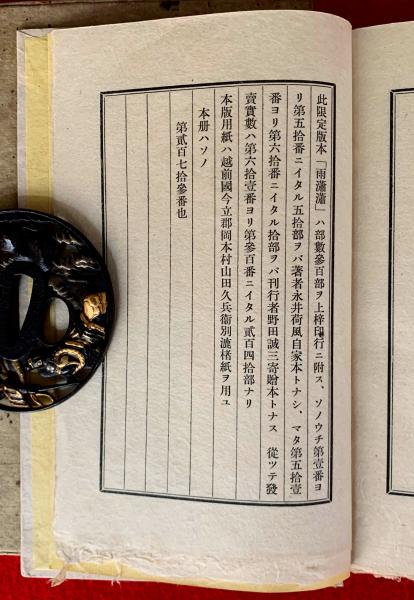 此限定版本「雨瀟瀟」ハ部數參百部ヲ上梓印行ニ附ス、ソノウチ第壹番ヨ
リ第五拾番ニイタル五拾部ヲバ著者永井荷風自家本トナシ、マタ第五拾壹
番ヨリ第六拾番ニイタル拾部ヲバ刊行者野田誠三寄贈本トナス 從ツテ發
賣實數ハ第六拾壹番ヨリ第參百番ニイタル貳百四拾部ナリ
本版用紙ハ越前國今立郡岡本村山田久兵衞別漉楮紙ヲ用ユ
本册ハソノ
第貳百七拾參番也